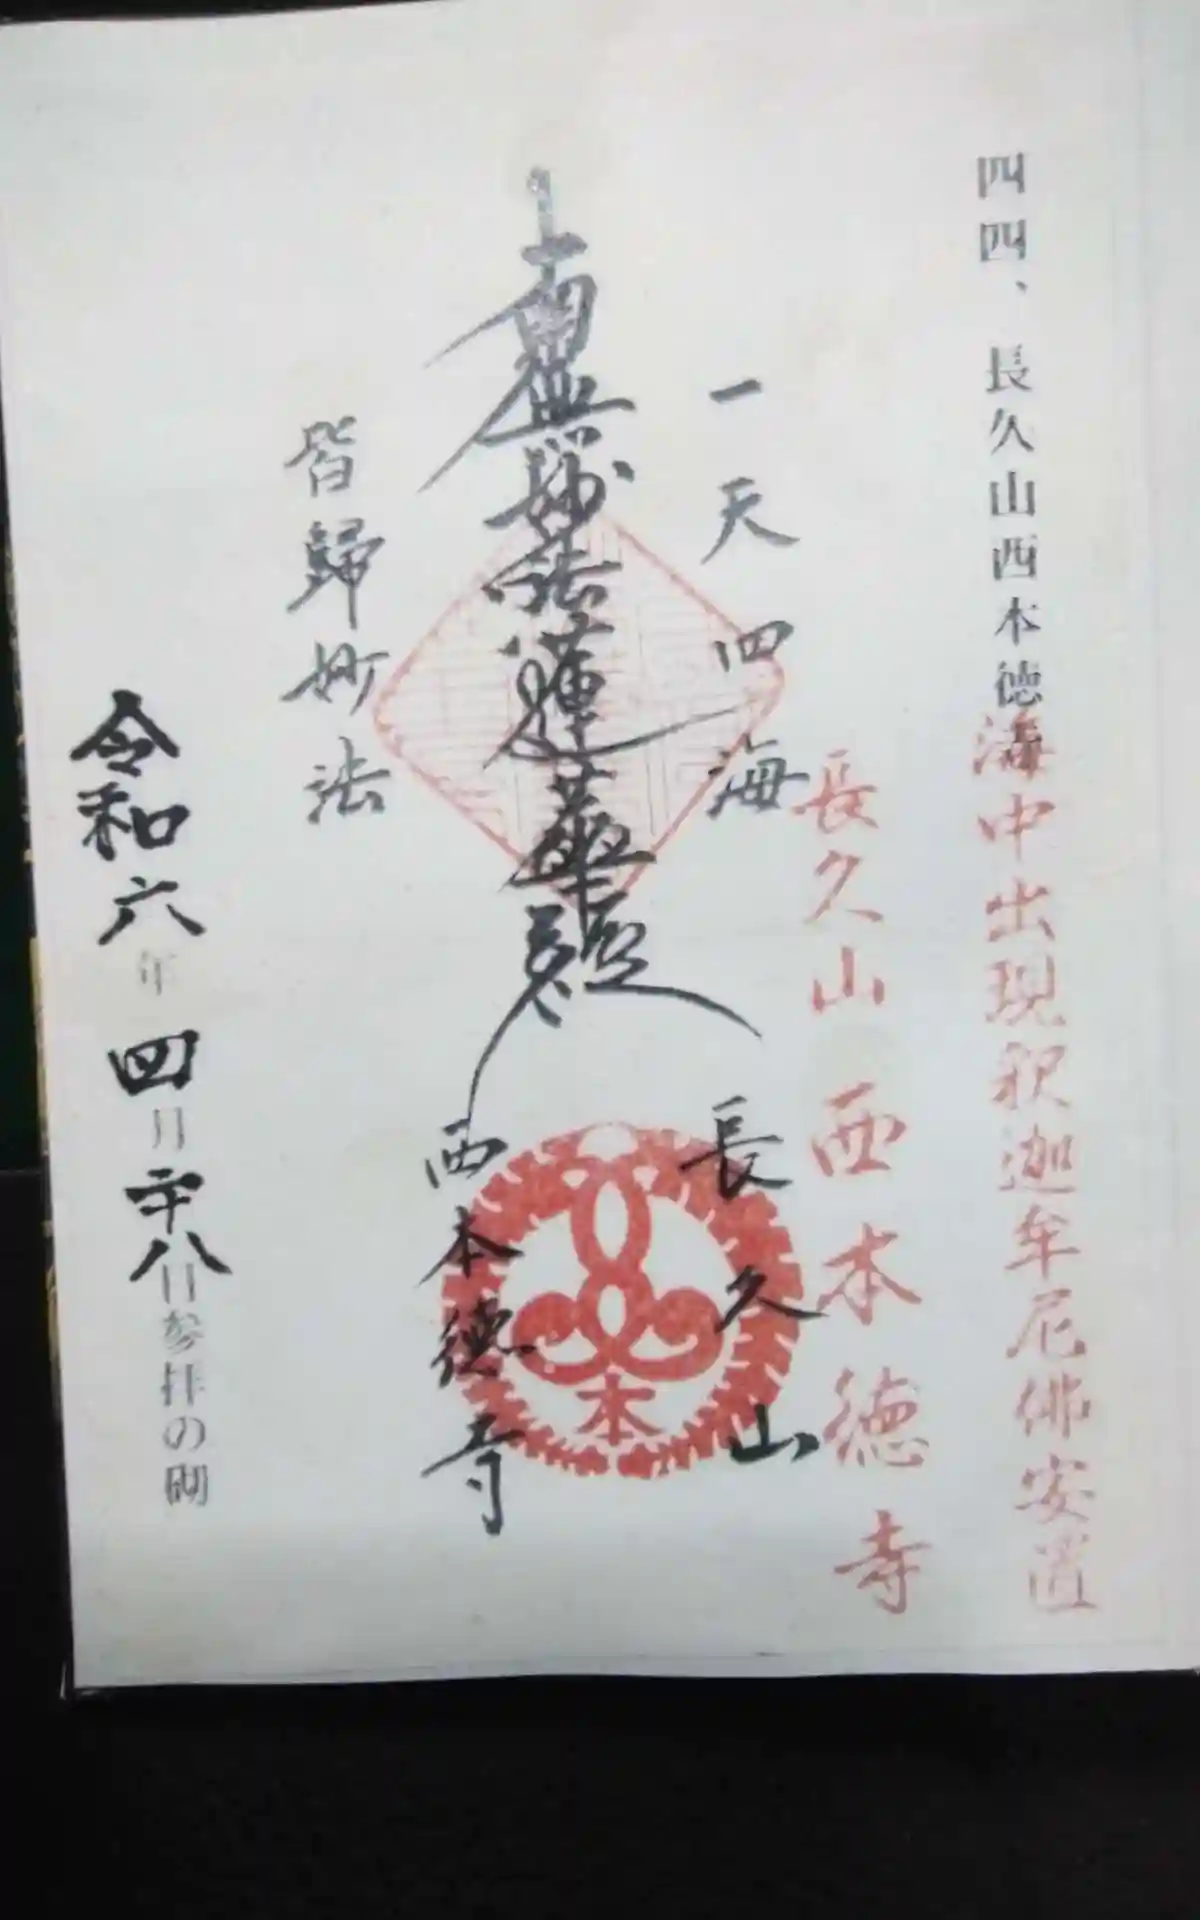 四四、長久山西本徳寺
海中出現釈迦牟尼佛安置
長久山 西本徳寺
一天四海
長久山
南無妙法蓮華経
本
西本徳寺
皆歸妙法
令和六年四月廿八日参拝の砌